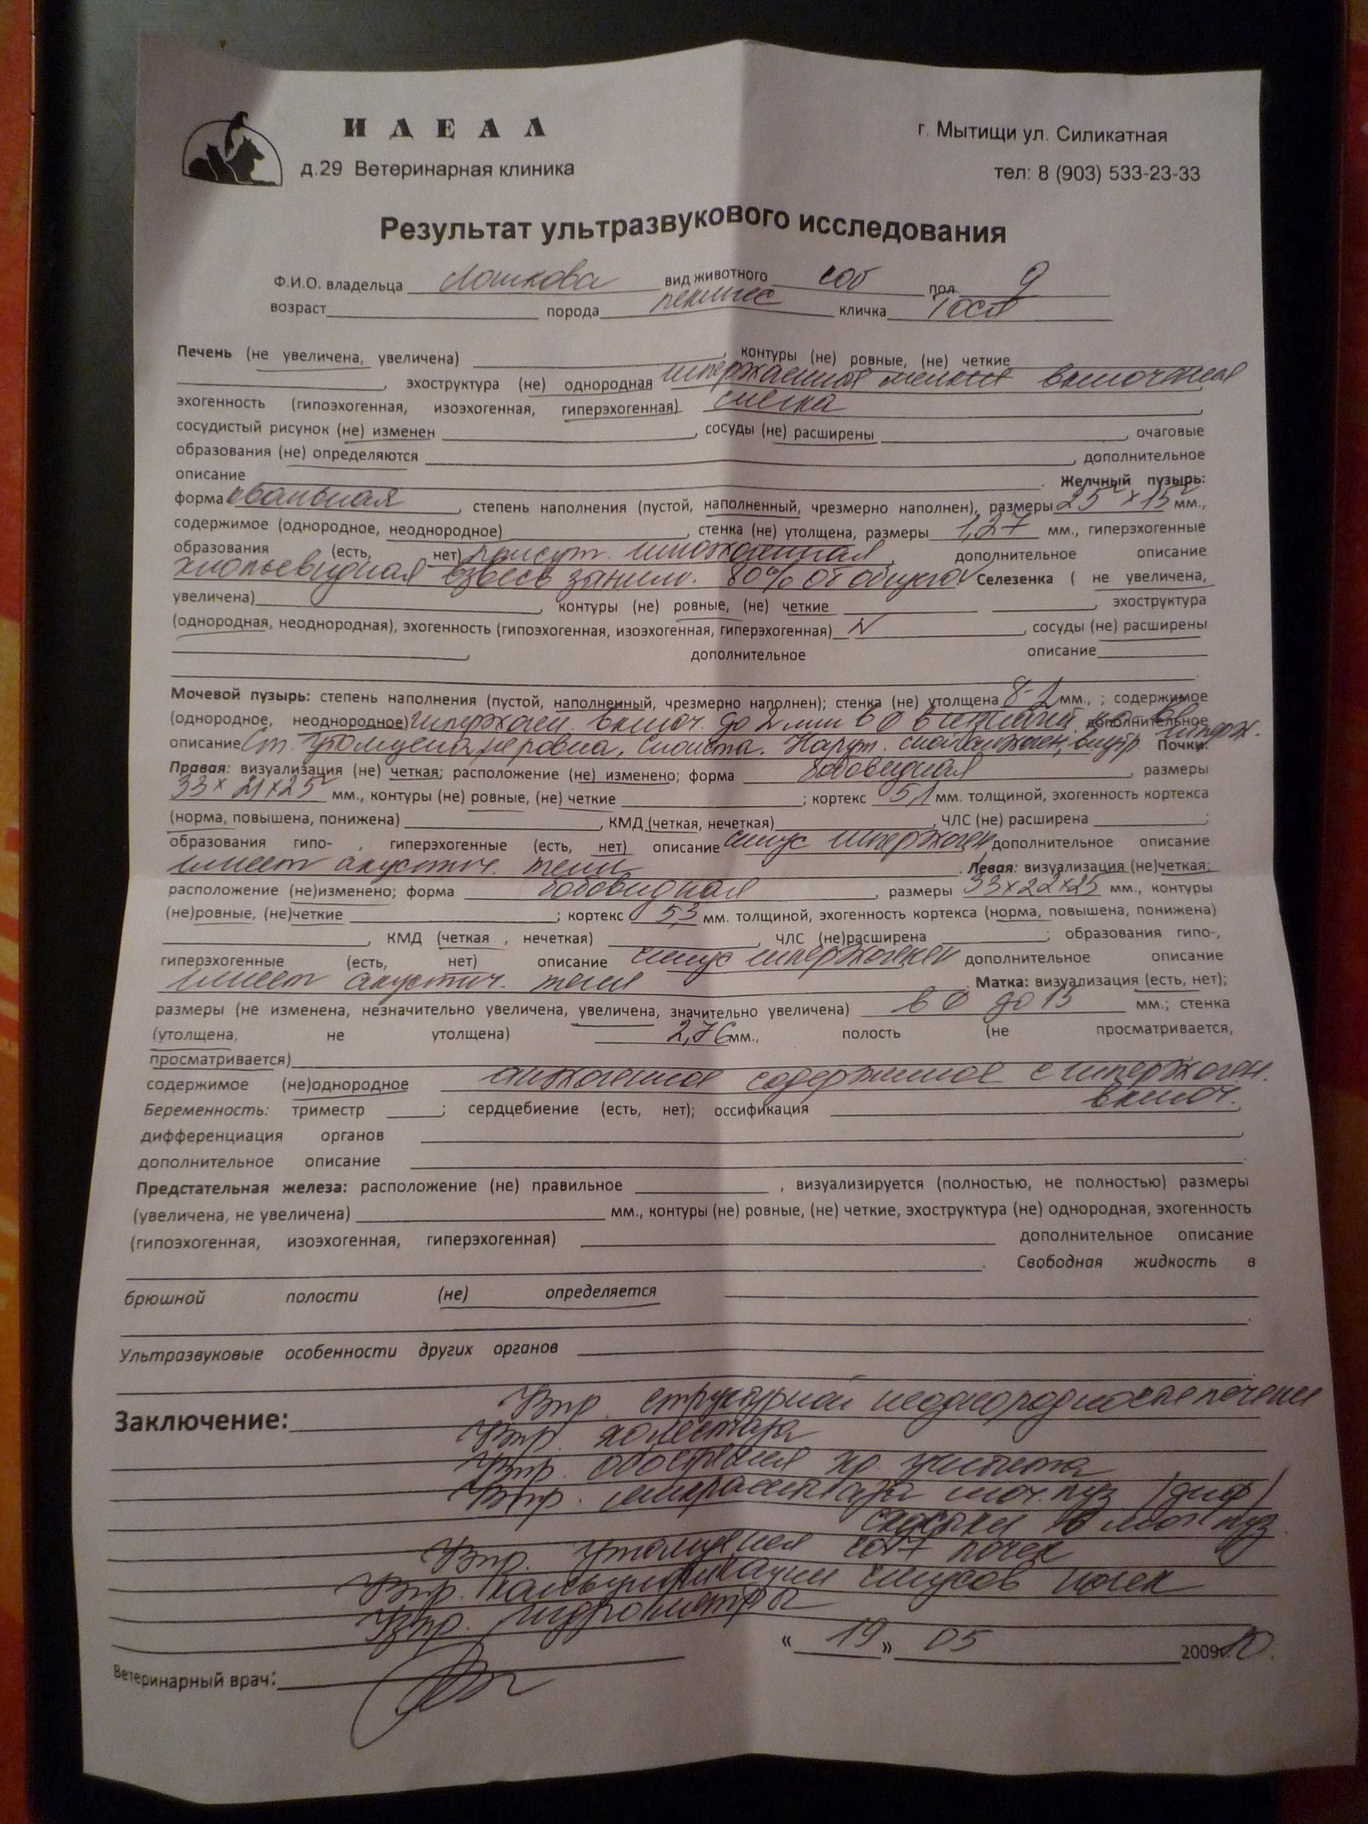 ИДЕАЛ
г. Мытищи ул. Силикатная
д.29 Ветеринарная клиника
тел: 8 (903) 533-23-33
Результат ультразвукового исследования
Ф.И.О. владельца вид животного соб пол ♀
возраст порода пекинес кличка
Печень (не увеличена, увеличена) , контуры (не) ровные, (не) четкие
, эхоструктура (не) однородная мелкие включения
эхогенность (гипоэхогенная, изоэхогенная, гиперэхогенная) слегка ,
сосудистый рисунок (не) изменен , сосуды (не) расширены , очаговые
образования (не) определяются , дополнительное
описание . Желчный пузырь:
форма овальная , степень наполнения (пустой, наполненный, чрезмерно наполнен), размеры 25 х 15 мм.,
содержимое (однородное, неоднородное) , стенка (не) утолщена, размеры 1,27 мм., гиперэхогенные
образования (есть, нет) присут. , дополнительное описание
хлопьевидная взвесь заним. 80% от общего Селезенка ( не увеличена,
увеличена) , контуры (не) ровные, (не) четкие , эхоструктура
(однородная, неоднородная), эхогенность (гипоэхогенная, изоэхогенная, гиперэхогенная) N , сосуды (не) расширены
, дополнительное описание
.
Мочевой пузырь: степень наполнения (пустой, наполненный, чрезмерно наполнен); стенка (не) утолщена мм., ; содержимое
(однородное, неоднородное) гиперэхоген. включ. до 2 мм в Ф дополнительное
описание Ст. утолщена, неровна, слоиста. Наруж. слой внутр. гиперэх. Почки.
Правая: визуализация (не) четкая; расположение (не) изменено; форма бобовидная , размеры
33 х 21 х 25 мм., контуры (не) ровные, (не) четкие ; кортекс 5,1 мм. толщиной, эхогенность кортекса
(норма, повышена, понижена) , КМД (четкая, нечеткая) , ЧЛС (не) расширена ;
образования гипо- , гиперэхогенные (есть, нет) описание синус гиперэхоген, дополнительное описание
имеет акустич. тени . Левая: визуализация (не)четкая;
расположение (не)изменено; форма бобовидная , размеры 33х22х25 мм., контуры
(не)ровные, (не)четкие ; кортекс 5,3 мм. толщиной, эхогенность кортекса (норма, повышена, понижена)
, КМД (четкая , нечеткая) , ЧЛС (не)расширена ; образования гипо-,
гиперэхогенные (есть, нет) описание синус гиперэхоген дополнительное описание
имеет акустич. тени . Матка: визуализация (есть, нет);
размеры (не изменена, незначительно увеличена, увеличена, значительно увеличена) в Ф до 15 мм.; стенка
(утолщена, не утолщена) 2,76 мм., полость (не просматривается,
просматривается)
содержимое (не)однородное анэхогенное содержимое с гиперэхоген.
включ.
Беременность: триместр ; сердцебиение (есть, нет); оссификация ,
дифференциация органов ,
дополнительное описание .
Предстательная железа: расположение (не) правильное , визуализируется (полностью, не полностью) размеры
(увеличена, не увеличена) мм., контуры (не) ровные, (не) четкие, эхоструктура (не) однородная, эхогенность
(гипоэхогенная, изоэхогенная, гиперэхогенная) дополнительное описание
. Свободная жидкость в
брюшной полости (не) определяется
.
Ультразвуковые особенности других органов
Заключение: Впр. структурной неоднородности печени
Впр. холестаза
Впр. обострения хр. цистита
Впр. моч. пуз /диф/
сгустки в моч пуз.
Впр. утолщения почек
Впр. кальцификации синусов почек
Впр. гидрометры
« 19 » 05 2009г. 10.
Ветеринарный врач: